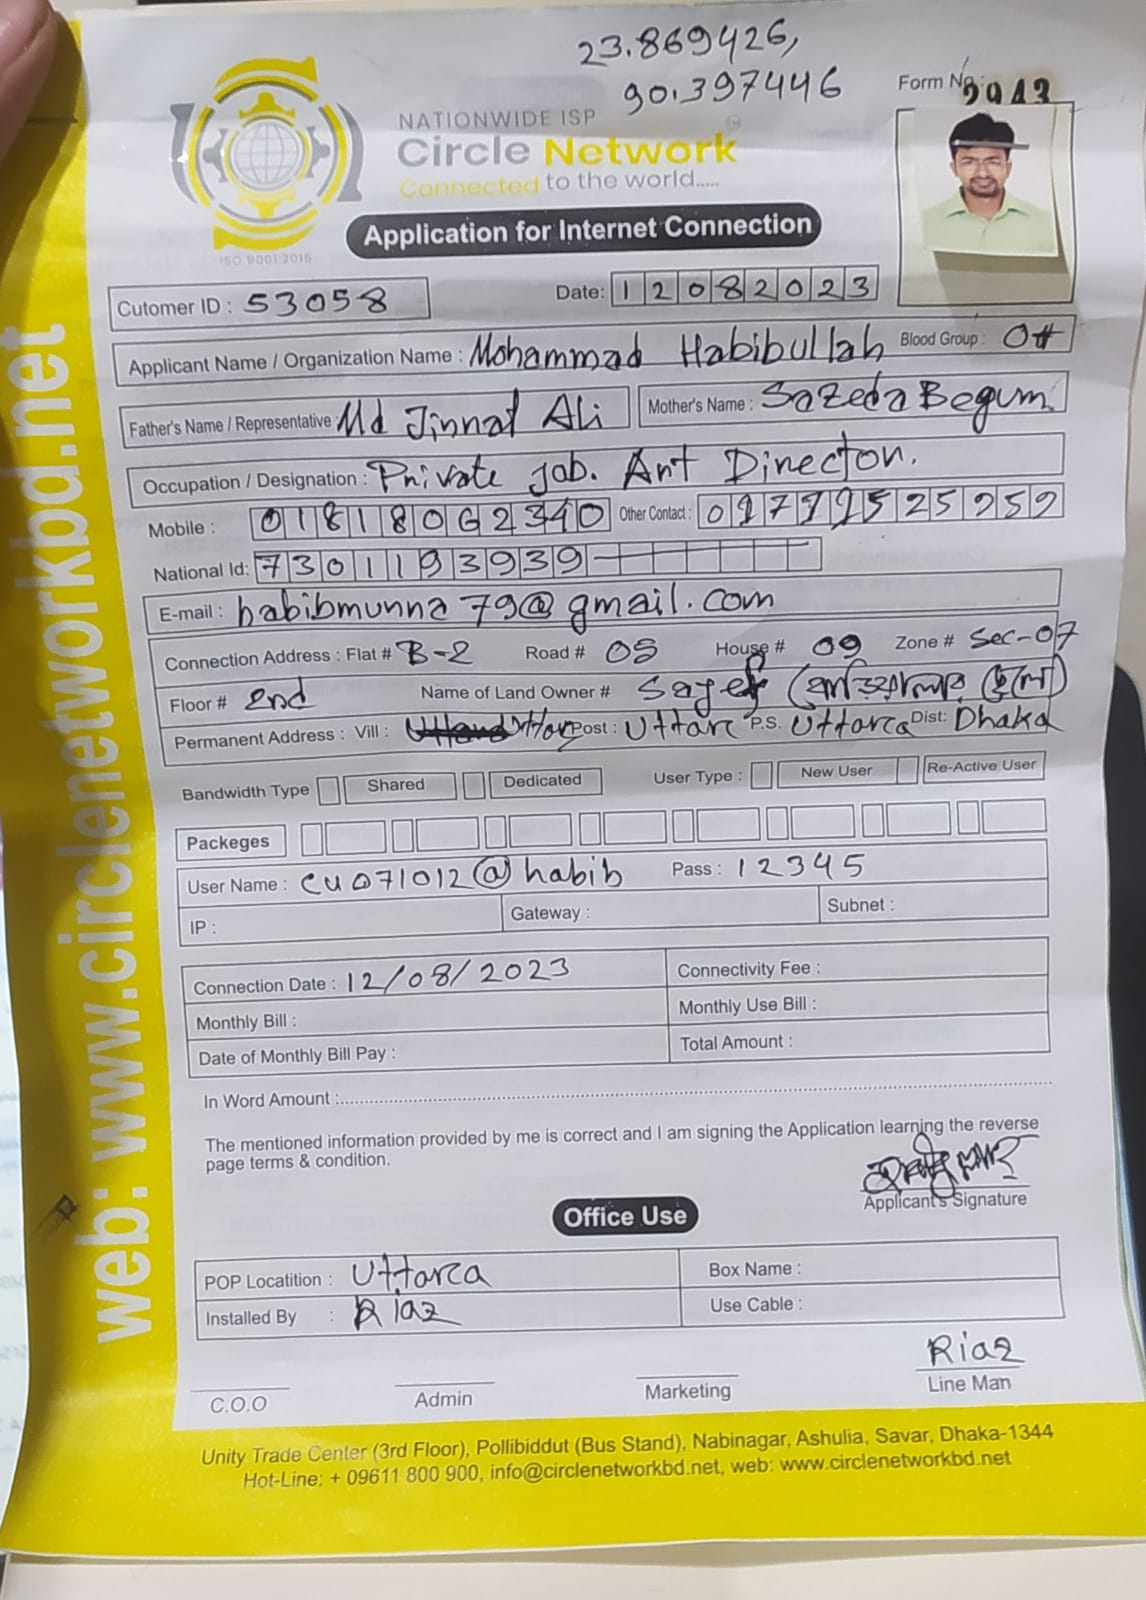 23.869426,
90.397446
Form No:
NATIONWIDE ISP
Circle Network
Connected to the world.....
ISO 9001:2015
Application for Internet Connection
Cutomer ID : 53058
Date: 12082023
Applicant Name / Organization Name : Mohammad Habibullah Blood Group :
Father's Name / Representative Md Jinnat Ali Mother's Name : Sazeda Begum
Occupation / Designation : Private Job. Art Director.
Mobile : 01818062340 Other Contact :
National Id: 7301193939
E-mail : habibmunna79@gmail.com
Connection Address : Flat # B-2 Road # 05 House # 09 Zone # Sec-07
Floor # 2nd Name of Land Owner #
Permanent Address : Vill : Post : Uttara P.S. Uttarca Dist: Dhaka
Bandwidth Type Shared Dedicated User Type : New User Re-Active User
Packeges
User Name : cu071012@habib Pass : 12345
IP : Gateway : Subnet :
Connection Date : 12/08/2023 Connectivity Fee :
Monthly Bill : Monthly Use Bill :
Date of Monthly Bill Pay : Total Amount :
In Word Amount :
The mentioned information provided by me is correct and I am signing the Application learning the reverse
page terms & condition.
Applicant's Signature
Office Use
POP Locatition : Uttarca Box Name :
Installed By : Riaz Use Cable :
Riaz
C.O.O Admin Marketing Line Man
Unity Trade Center (3rd Floor), Pollibiddut (Bus Stand), Nabinagar, Ashulia, Savar, Dhaka-1344
Hot-Line: + 09611 800 900, info@circlenetworkbd.net, web: www.circlenetworkbd.net
web: www.circlenetworkbd.net